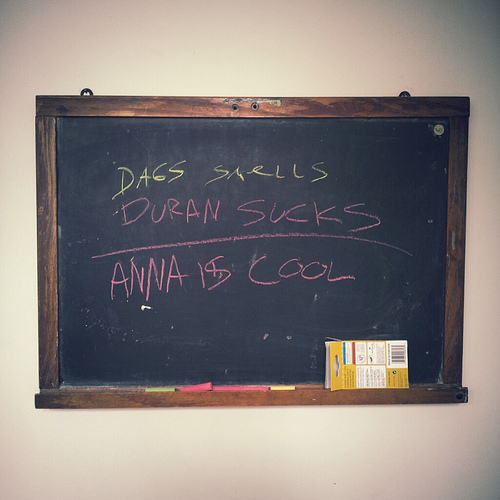 DAGS SMELLS
DURAN SUCKS
ANNA IS COOL